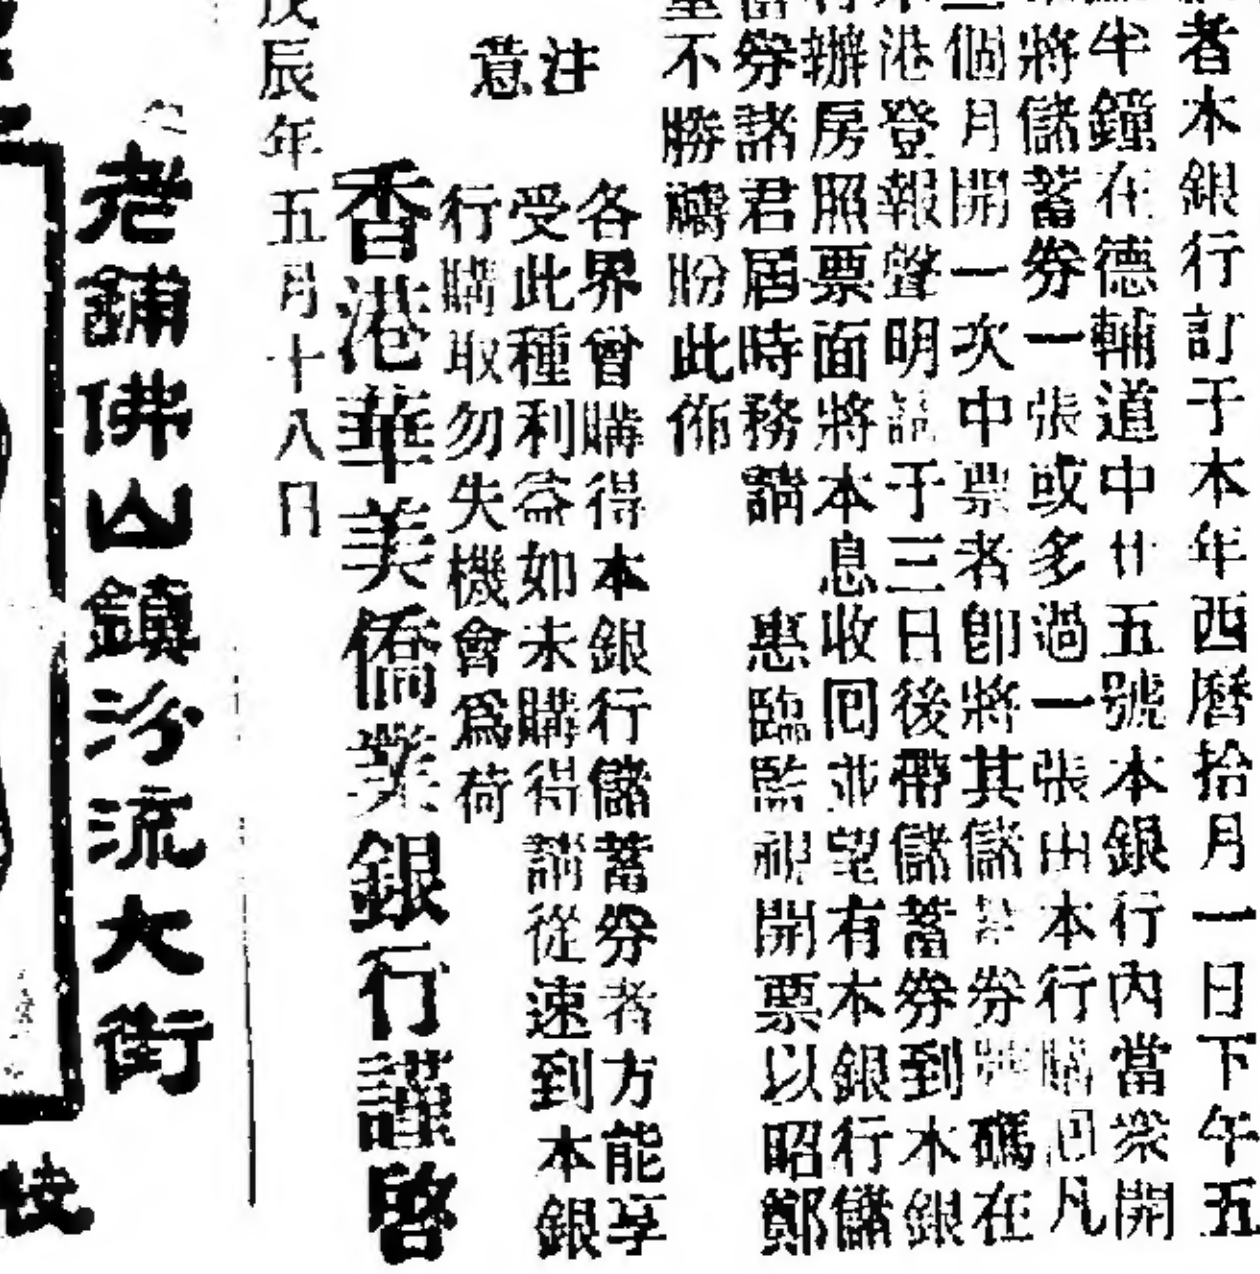 者本銀行訂于本年西曆拾月一日下午五
半鐘在德輔道中廿五號本銀行內當衆開
將儲蓄券一張或多過一張由本行購回凡
個月開一次中票者卽將其儲蓄券號碼在
港登報聲明請于三日後帶儲蓄券到本銀
辦房照票面將本息收回並望有本銀行儲
券諸君屆時務請 惠臨監視開票以昭鄭
不勝禱盼此佈
注意
各界曾購得本銀行儲蓄券者方能享
受此種利益如未購得請從速到本銀
行購取勿失機會爲荷
香港華美僑業銀行謹啓
戊辰年五月十八日
老舖佛山鎮汾流大街